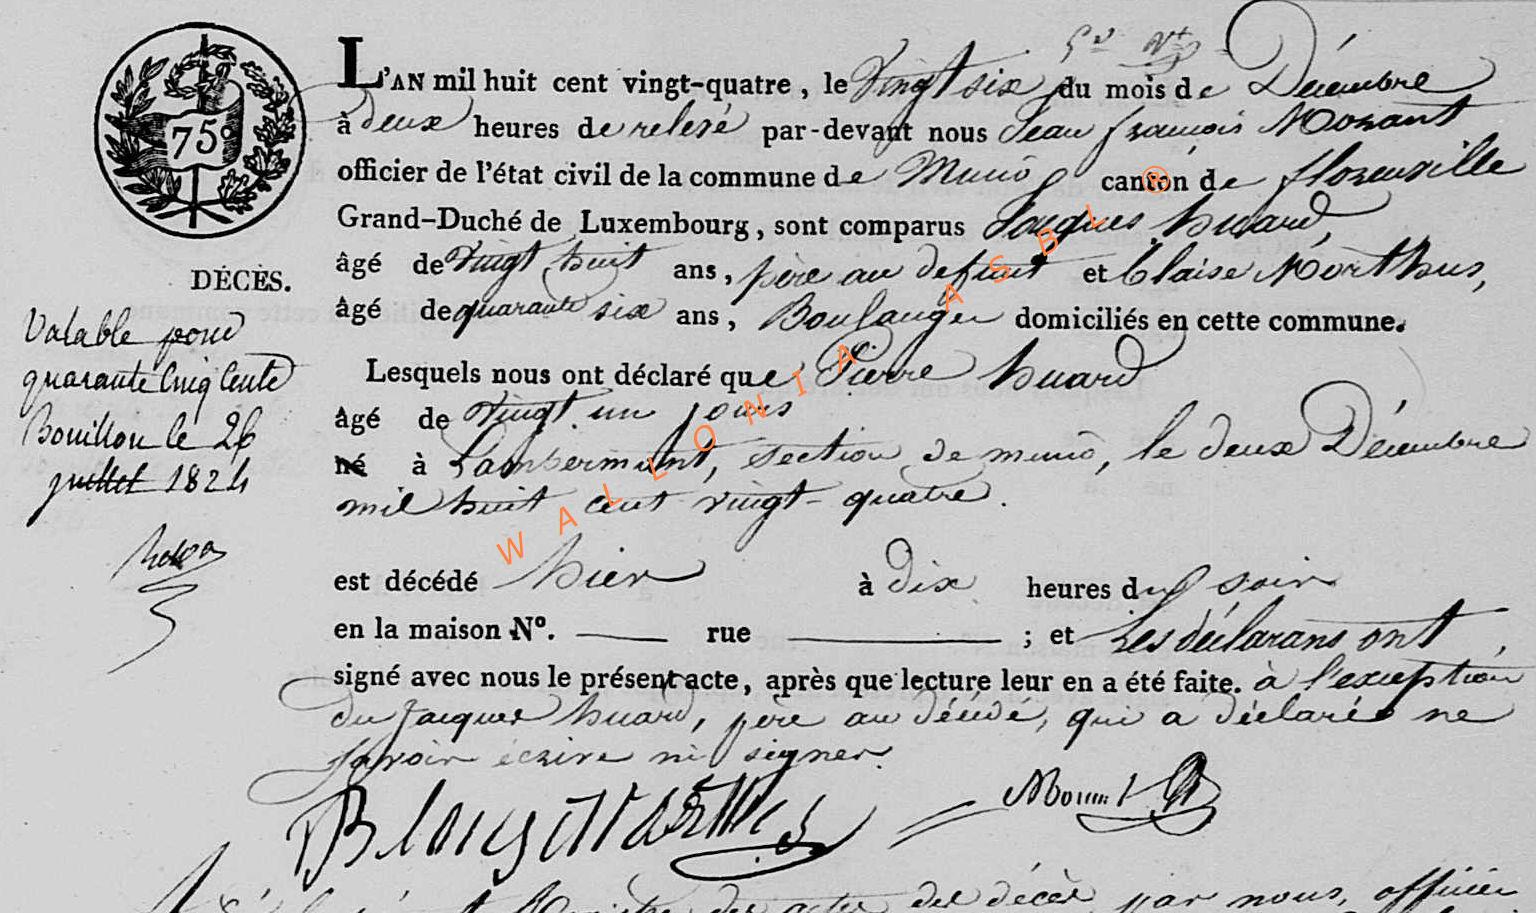 L'AN mil huit cent vingt-quatre, le Vingt six du mois de Décembre
à deux heures de relevé par-devant nous Jean françois Monant
officier de l'état civil de la commune de Muno canton de florenville
Grand-Duché de Luxembourg, sont comparus Jacques huard,
âgé de Vingt huit ans, père au defunt et Blaise Northus,
âgé de quarante six ans, Boulanger domiciliés en cette commune.
Lesquels nous ont déclaré que Pierre huard
âgé de vingt un jours
né à Lambermont, section de muno, le deux Décembre
mil huit cent vingt-quatre.
est décédé hier à dix heures du soir
en la maison N°. rue ; et Les déclarans ont
signé avec nous le présent acte, après que lecture leur en a été faite. à l'exception
du Jacques huard, père au décédé, qui a déclaré ne
savoir écrire ni signer.
75c
DÉCÈS.
Valable pour
quarante Cinq Cents
Bouillon le 26
juillet 1824
WALLONIA ASBL ®
des actes des décès par nous, officier